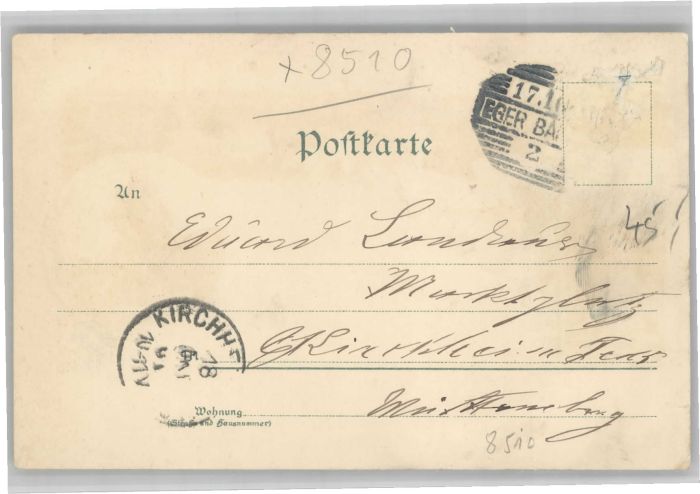 +8510
17.10
EGER BA
2
Postkarte
An
Eduard
45
Marktplatz
KIRCHH
18
Kirchheim Teck
Württemberg
Wohnung
(Straße und Hausnummer)
8510